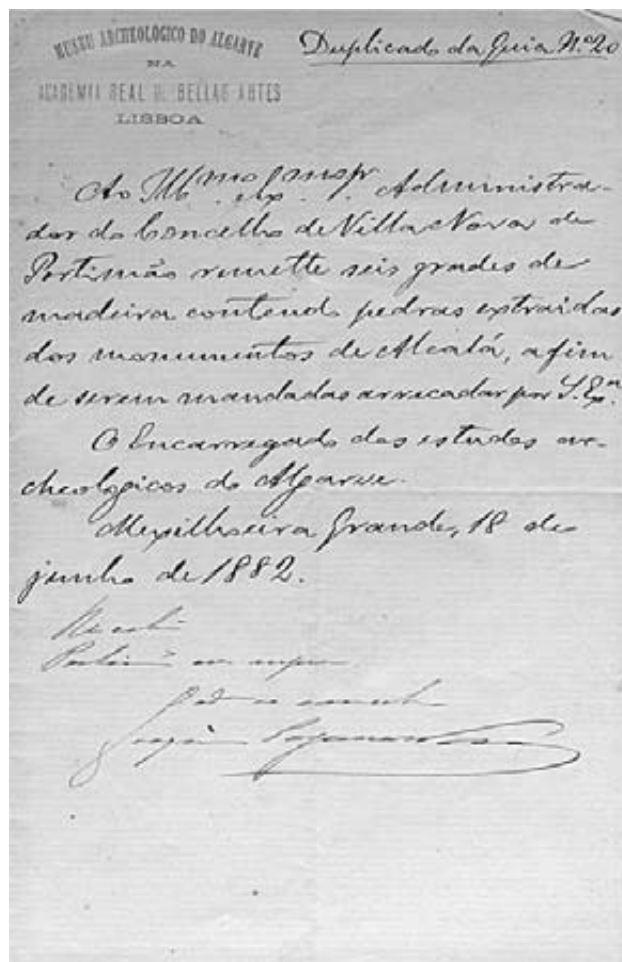 MUSEU ARCHEOLÓGICO DO ALGARVE
NA
ACADEMIA REAL DE BELLAS ARTES
LISBOA
Duplicado da Guia N.º 20
Ao Ill.mo Ex.mo Sr. Administra-
dor do Concelho de Villa Nova de
Portimão remette seis grades de
madeira contendo pedras extraidas
dos monumentos de Alcalá, afim
de serem mandadas arrecadar por S. Ex.ª
O Encarregado dos estudos ar-
cheologicos do Algarve.
Mexilhoeira Grande, 18 de
junho de 1882.
Recebi